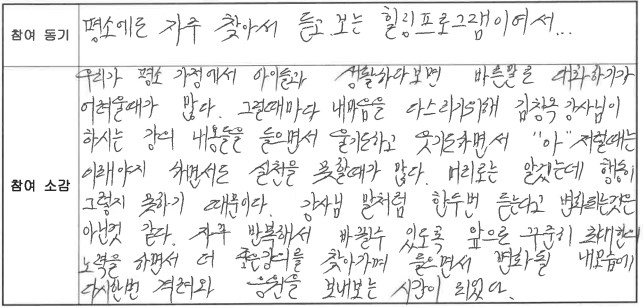 참여 동기
평소에도 자주 찾아서 듣고 보는 힐링프로그램이어서...
참여 소감
우리가 평소 가정에서 아이들과 생활하다보면 바른말로 대화하기가
어려울때가 많다. 그럴때마다 내마음을 다스리기위해 김창옥강사님이
하시는 강의 내용들을 들으면서 울기도하고 웃기도하면서 "아" 저럴때는
이래야지 하면서도 실천을 못할때가 많다. 머리로는 알겠는데 행동이
그렇지 못하기 때문이다. 강사님 말처럼 한두번 듣는다고 변화되는것은
아닌것 같다. 자주 반복해서 바뀔수 있도록 앞으로 꾸준히 최대한의
노력을 하면서 더 좋은강의를 찾아가며 들으면서 변화될 내모습에
다시한번 격려와 응원을 보내보는 시간이 되었다.